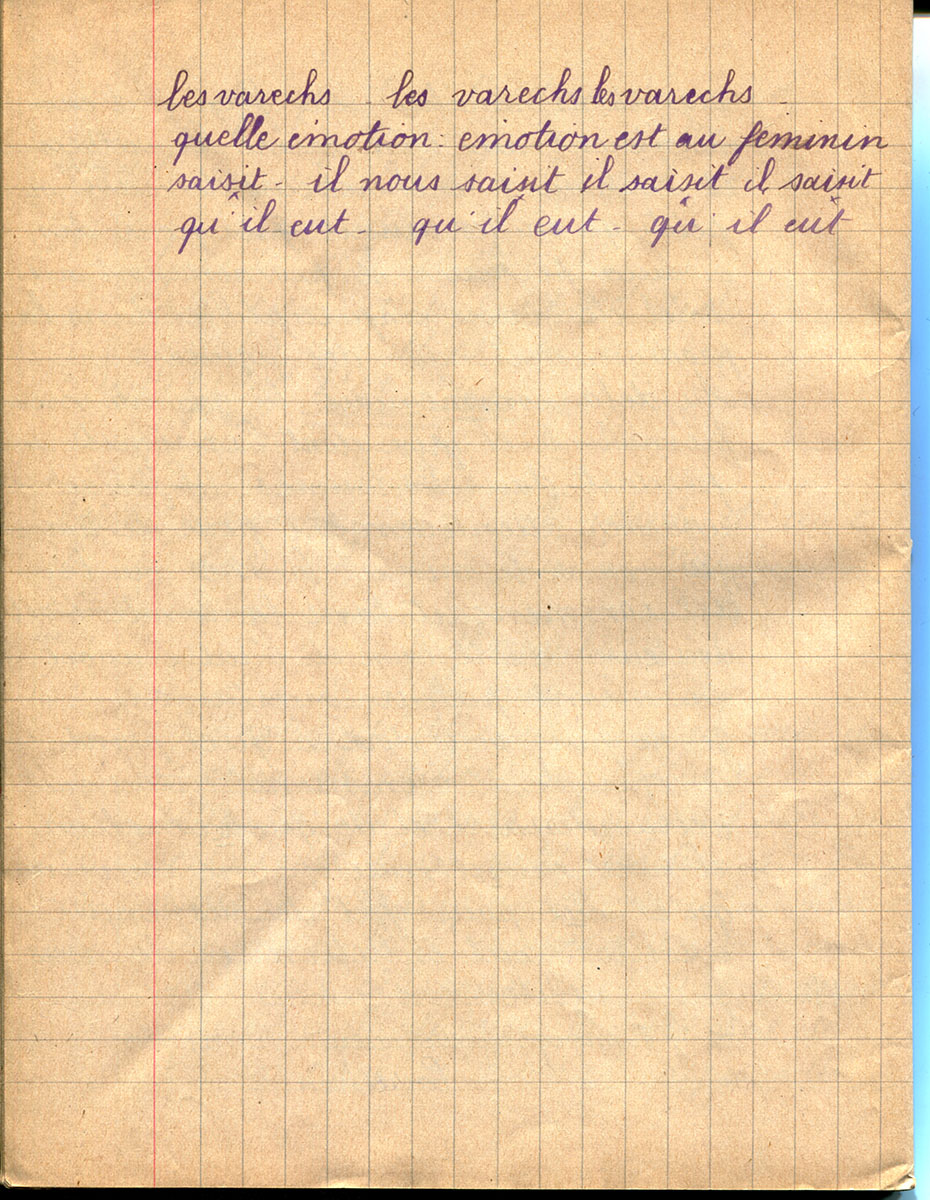 les varechs les varechs les varechs
quelle émotion. émotion est au feminin
saisit - il nous saisit il saisit il saisit
qu'il eut - qu'il eut - qu'il eût